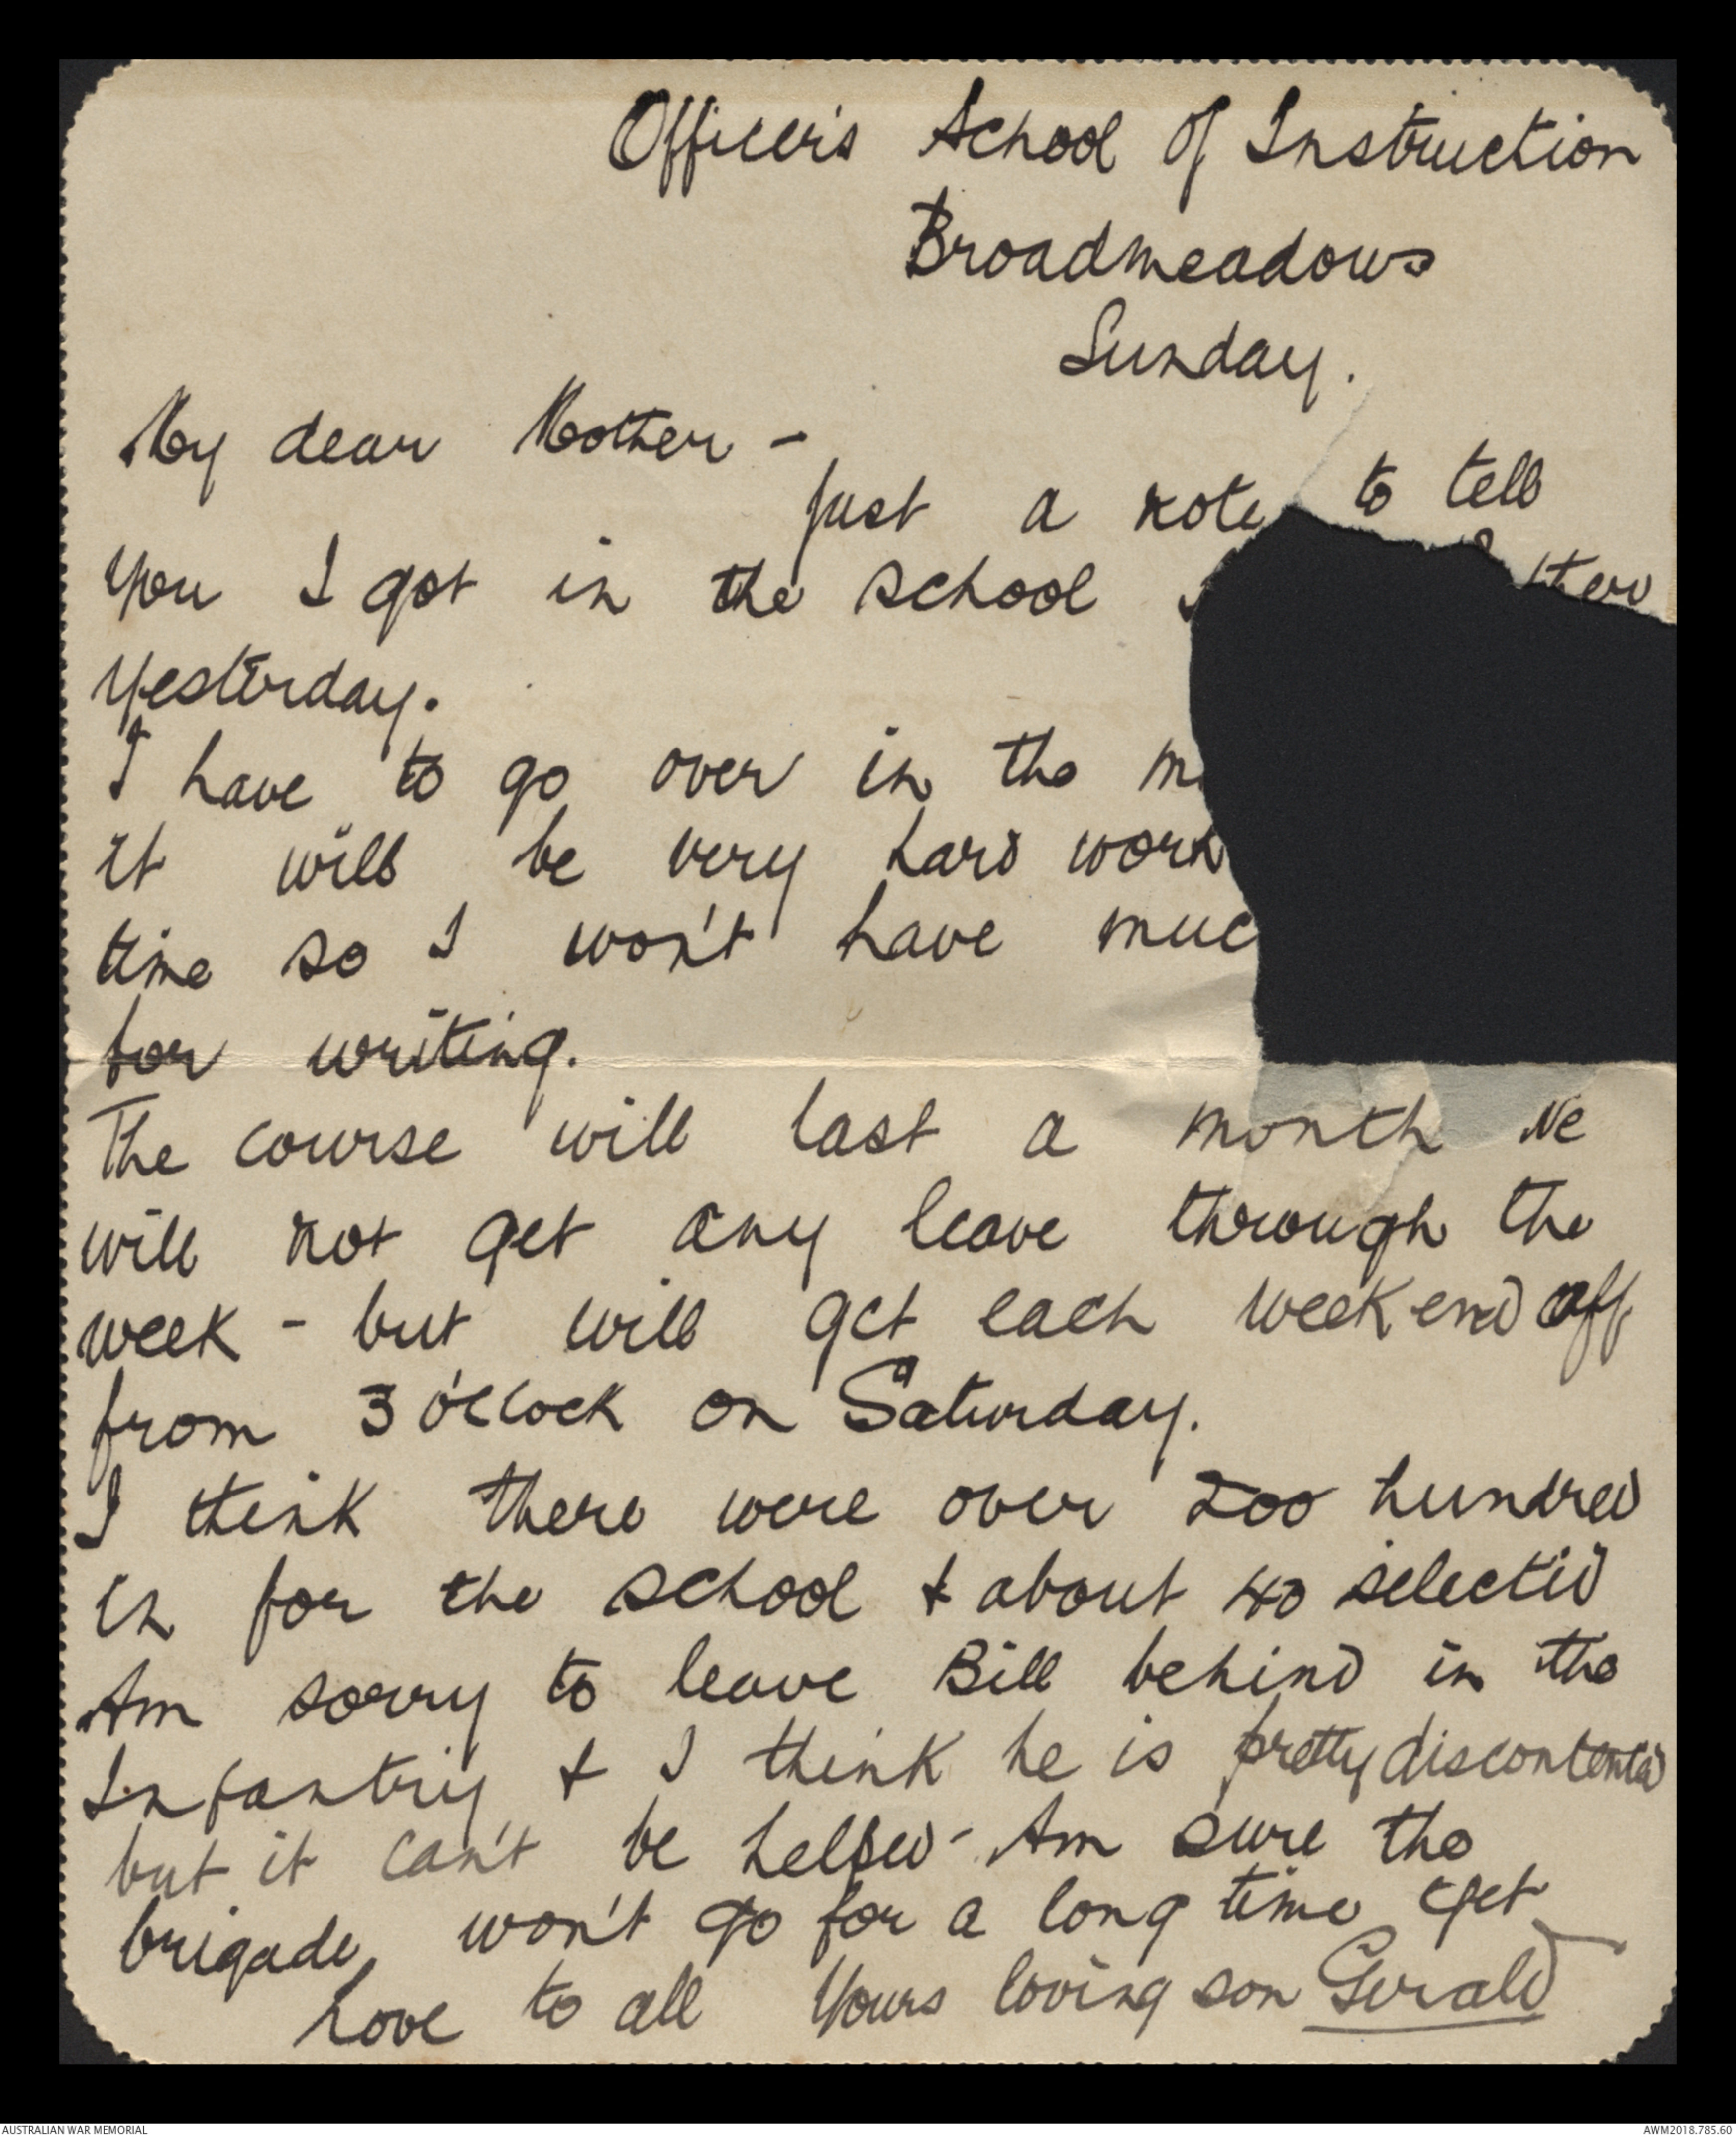 Officer's School of Instruction
Broadmeadows
Sunday.
My dear Mother -
Just a note to tell
you I got in the school
yesterday.
I have to go over in the
it will be very hard work
time so I won't have
for writing.
The course will last a month We
will not get any leave through the
week - but will get each week end off
from 3 o'clock on Saturday.
I think there were over 200 hundred
in for the school & about 40 selected
Am sorry to leave Bill behind in the
Infantry & I think he is pretty discontented
but it can't be helped - Am sure the
brigade won't go for a long time yet
Love to all Yours loving son Gerald
AUSTRALIAN WAR MEMORIAL
AWM2018.785.60